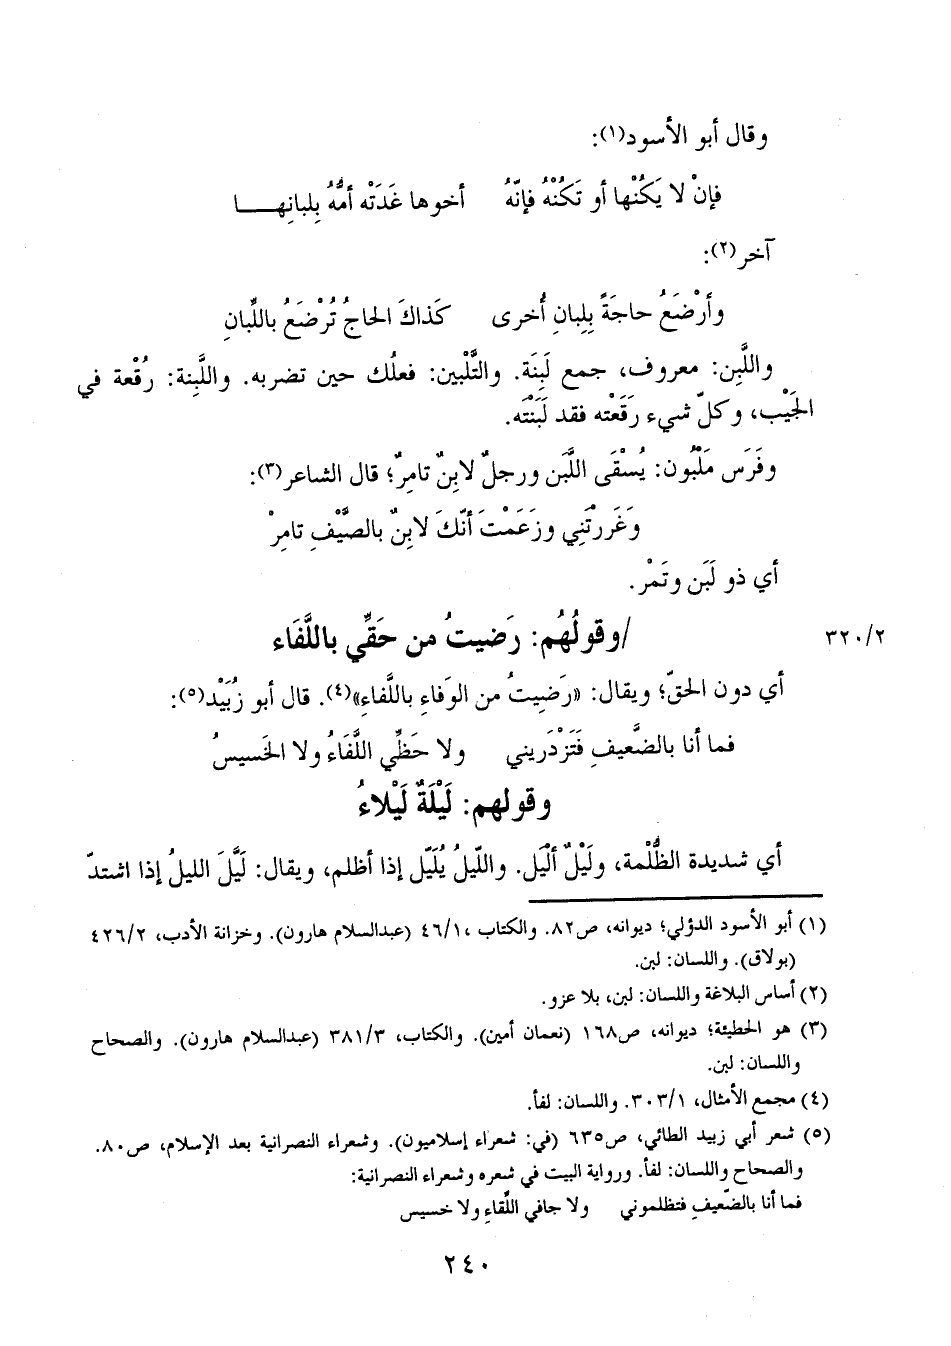 وقال أبو الأسود(١):
فإنْ لا يَكُنْها أو تَكُنْهُ فإنّهُ أخوها غَذَتْه أمُّهُ بِلبانِهـــا
آخر(٢):
وأَرْضَعُ حاجَةً بِلِبانِ أُخرى كَذاكَ الحاجُ تُرْضَعُ باللِّبانِ
واللَّبِن: معروف، جمع لَبِنَة. والتَّلْبين: فعلُك حين تضربه. واللَّبِنة: رُقْعة في
الجَيْب، وكلّ شيء رَقَعْته فقد لَبَنْتَه.
وفَرَس مَلْبُون: يُسْقَى اللَّبَن ورجلٌ لابِنٌ تامِرٌ؛ قال الشاعر(٣):
وغَررتْني وزَعَمْتَ أنّكَ لابِنٌ بالصَّيْفِ تامِرْ
أي ذو لَبَن وتَمْر.
/وقولُهُم: رَضيتُ من حَقِّي باللَّفَاء ٣٢٠/٢
أي دون الحقّ؛ ويقال: «رَضِيتُ من الوَفاءِ باللَّفاءِ»(٤). قال أبو زُبَيْد(٥):
فما أنا بالضَّعيفِ فَتَزْدَريني ولا حَظِّي اللَّفَاءُ ولا الخَسيسُ
وقولهم: لَيْلَةٌ لَيْلاءُ
أي شديدة الظُّلْمة، ولَيْلٌ ألْيَل. واللّيلُ يُلَيّل إذا أظلم، ويقال: لَيَّلَ الليلُ إذا اشتدّ
(١) أبو الأسود الدؤلي؛ ديوانه، ص٨٢. والكتاب ،٤٦/١ (عبدالسلام هارون). وخزانة الأدب، ٤٢٦/٢
(بولاق). واللسان: لبن.
(٢) أساس البلاغة واللسان: لبن، بلا عزو.
(٣) هو الحطيئة؛ ديوانه، ص١٦٨ (نعمان أمين). والكتاب، ٣٨١/٣ (عبدالسلام هارون). والصحاح
واللسان: لبن.
(٤) مجمع الأمثال، ٣٠٣/١. واللسان: لفأ.
(٥) شعر أبي زبيد الطائي، ص٦٣٥ (في: شعراء إسلاميون). وشعراء النصرانية بعد الإسلام، ص٨٠.
والصحاح واللسان: لفأ. ورواية البيت في شعره وشعراء النصرانية:
فما أنا بالضّعيفِ فتظلموني ولا جافي اللِّقاءِ ولا خسيس
٢٤٠